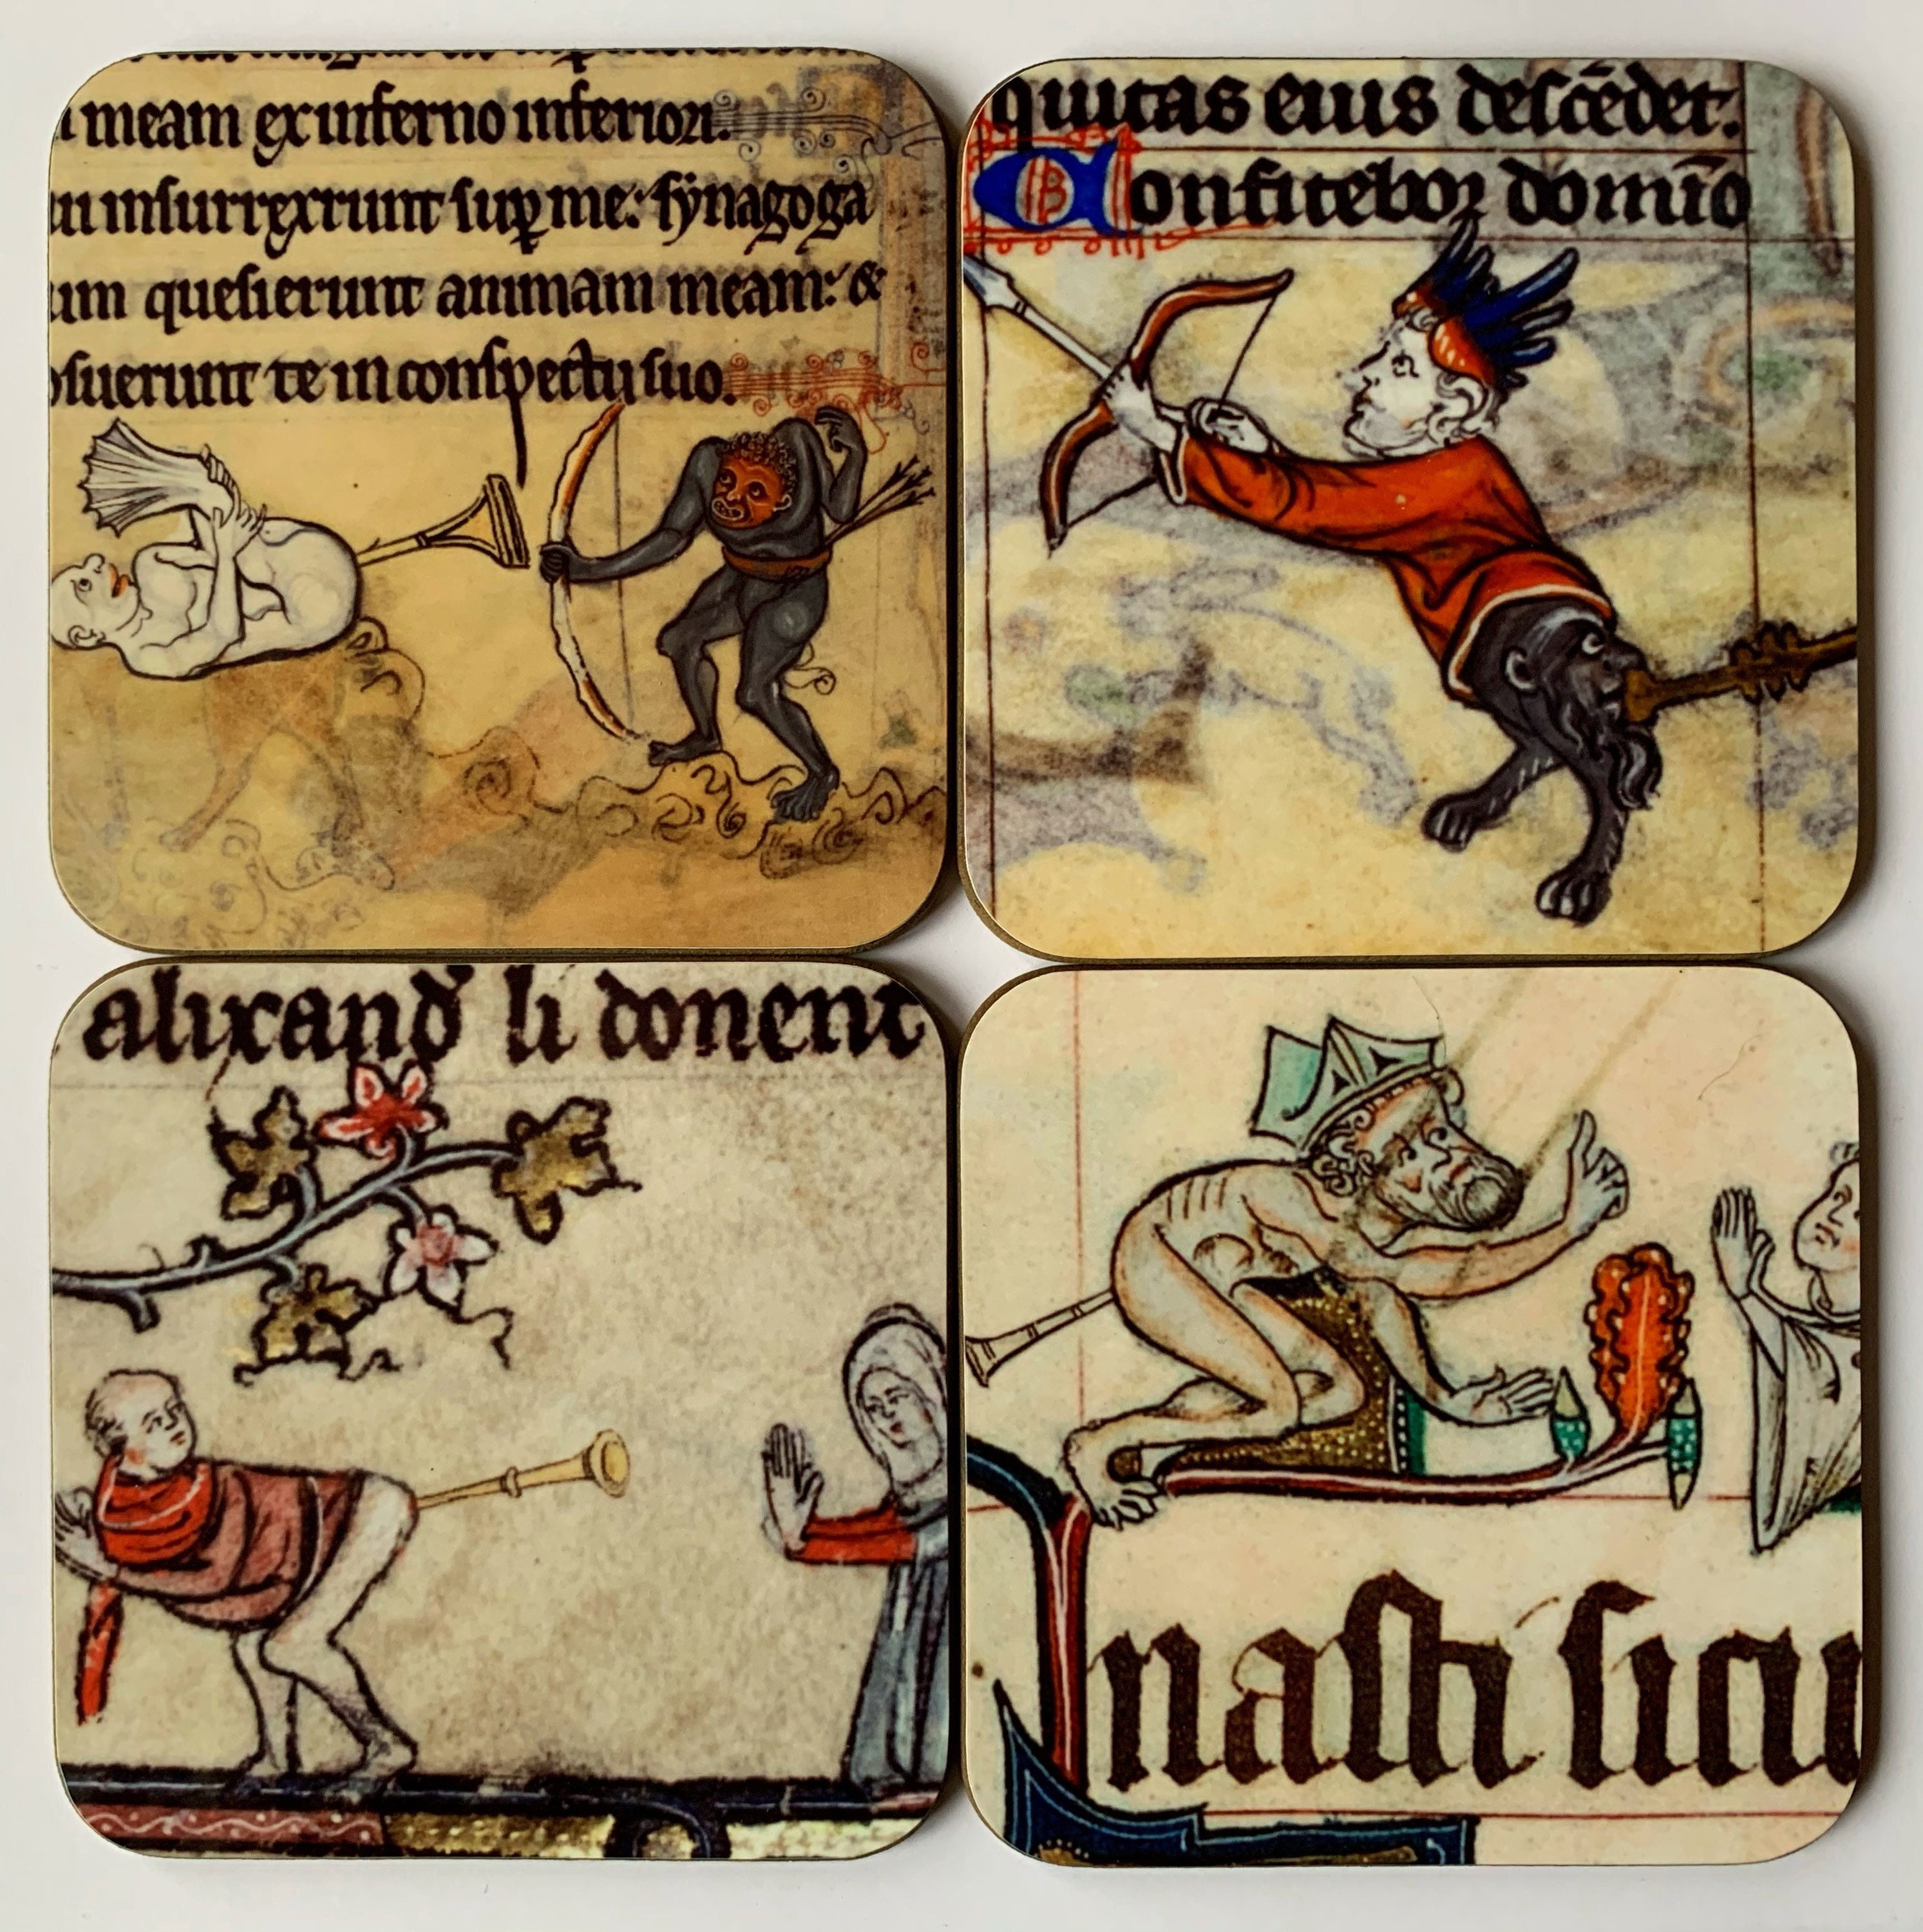 meam ex inferno inferiori.
ui insurrexerunt suꝑ me: synagoga
um quesierunt animam meam: &
osuerunt te in conspectu suo.
quitas eius descēdet.
Confitebor domīo
alixand’ li donent
nasti sicu